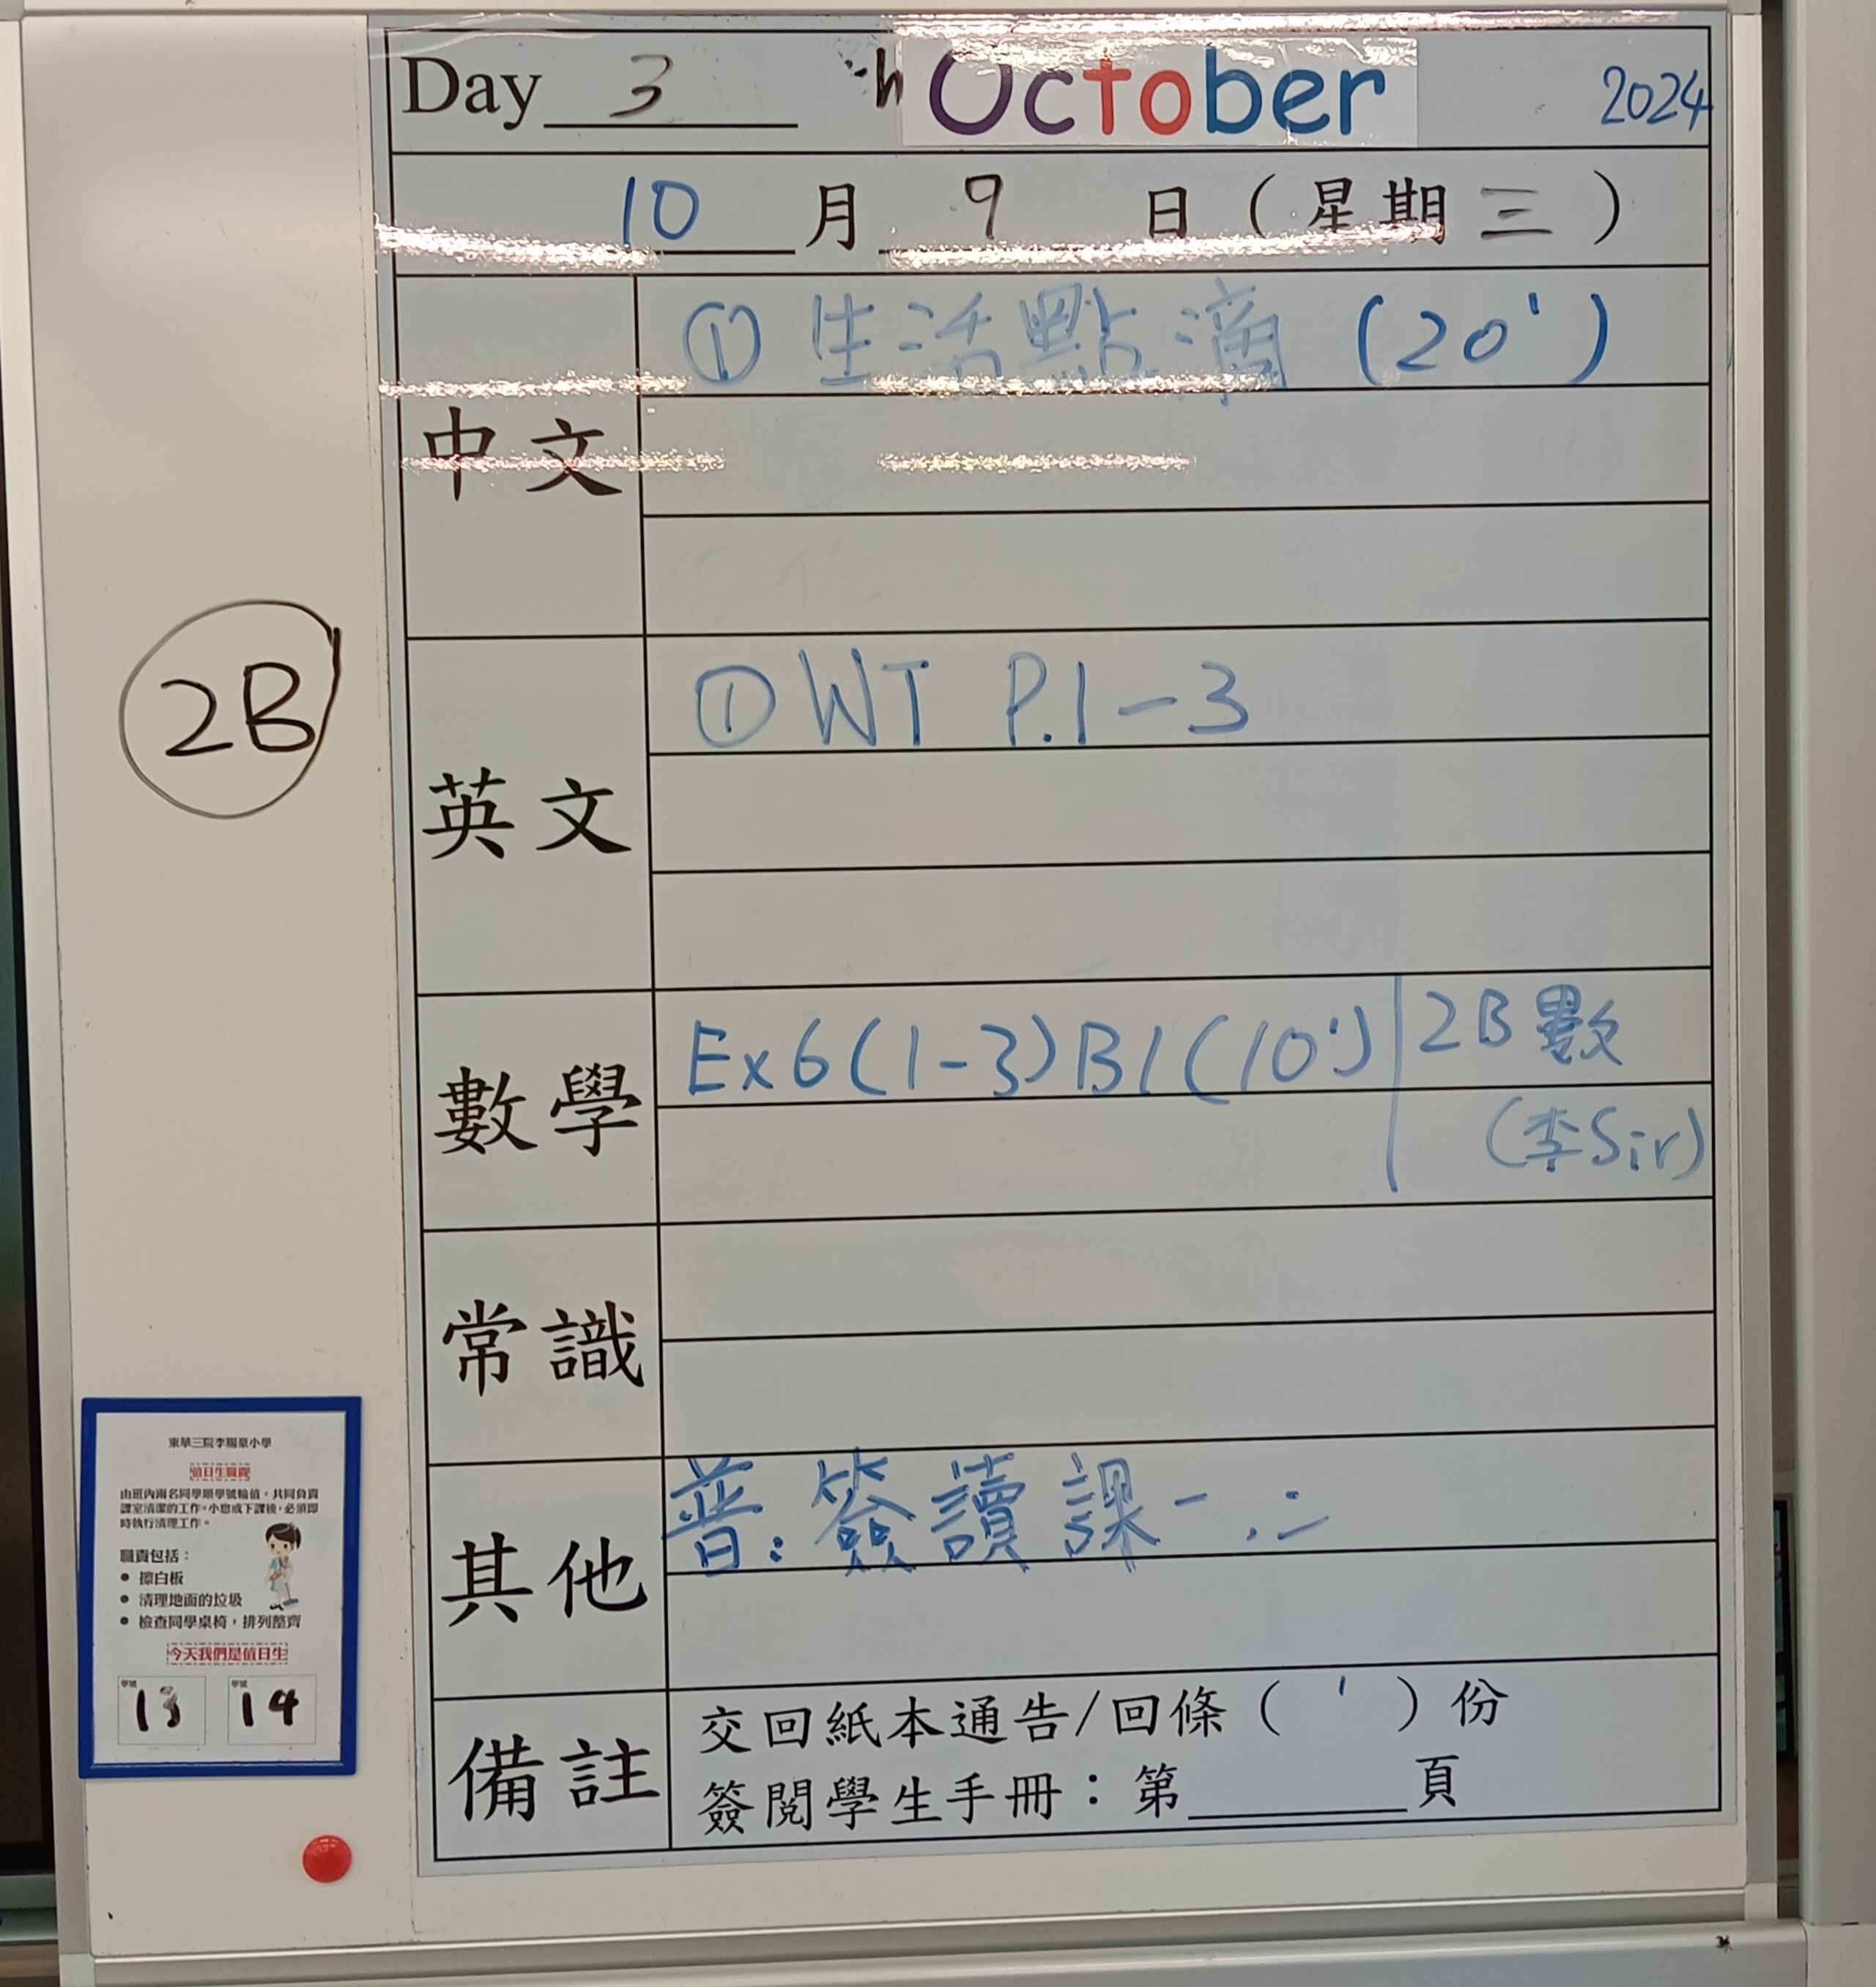 Day 3 October 2024
10 月 9 日（星期三）
中文
① 生活點滴 (20')
英文
① WT P.1-3
數學
Ex6(1-3)B1(10') 2B 數
(李Sir)
常識
其他
普:簽讀課一.二
備註
交回紙本通告/回條（ ' ）份
簽閱學生手冊：第______頁
2B
東華三院李賜豪小學
值日生職責
由班內兩名同學順學號輪值，共同負責
課室清潔的工作。小息或下課後，必須即
時執行清理工作。
職責包括：
• 擦白板
• 清理地面的垃圾
• 檢查同學桌椅，排列整齊
今天我們是值日生
學號 學號
13 14